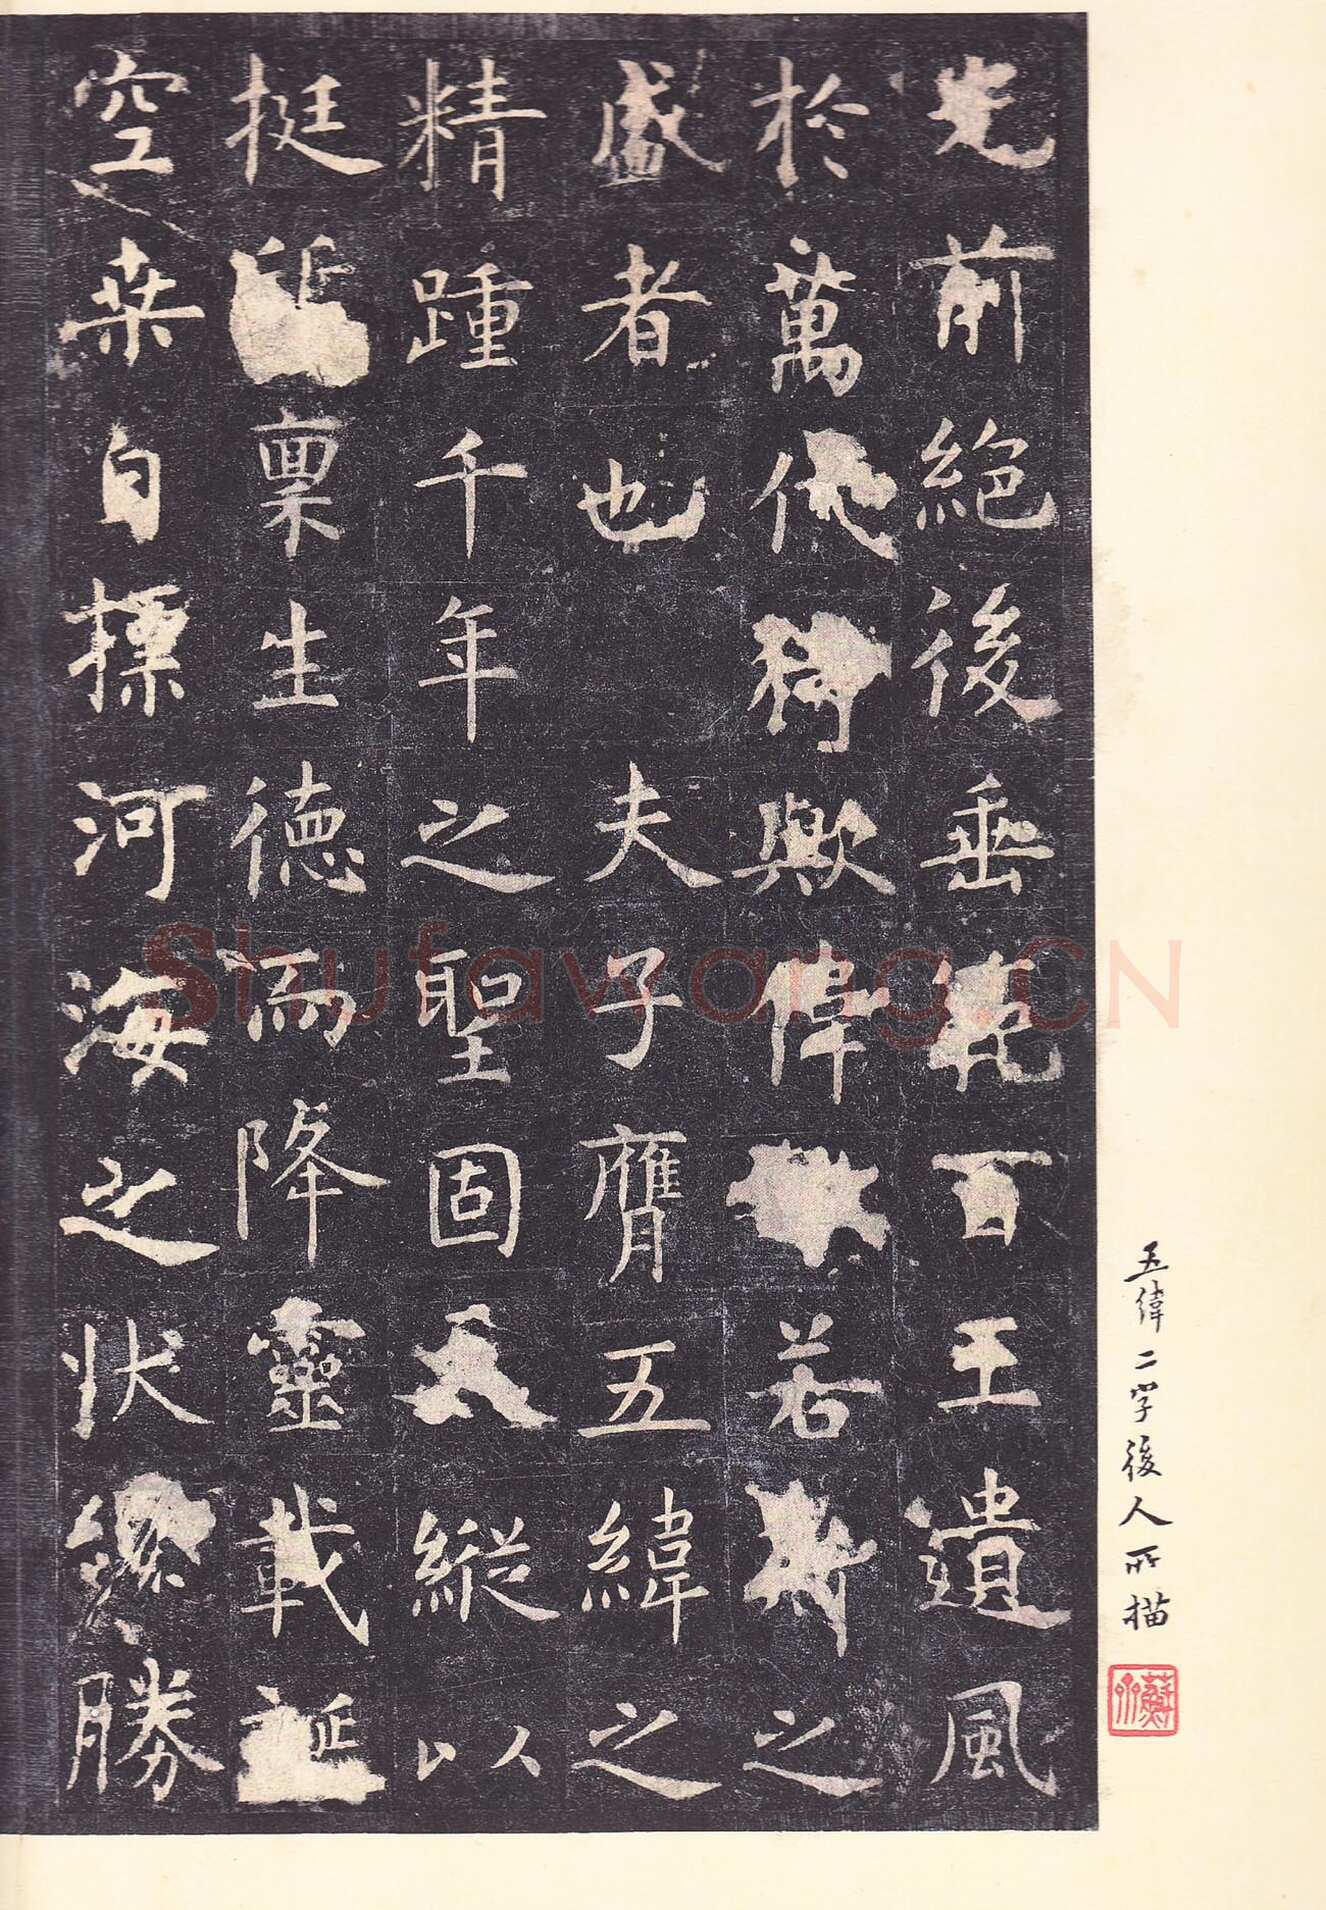 五緯二字後人所描
光前絕後垂範百王遺風
於萬代猗歟偉若斯之
盛者也 夫子膺五緯之
精踵千年之聖固天縱以
挺稟生德而降靈載誕
空桒自摽河海之狀纔勝
Shufawang.CN